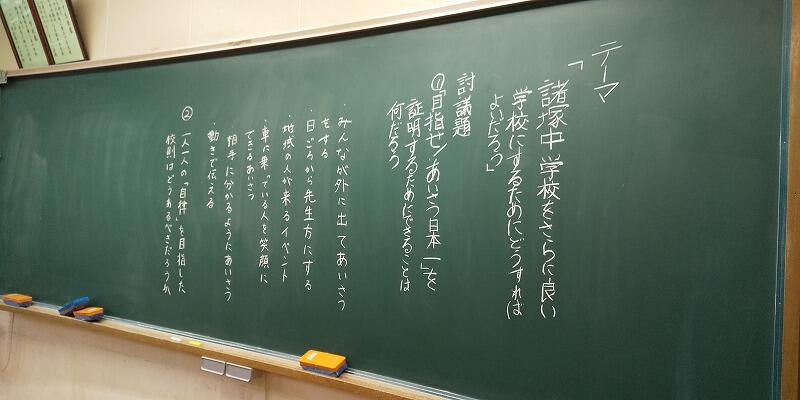 テーマ
「諸塚中学校をさらに良い
学校にするためにどうすれば
よいだろう」
討議題
①「目指せ!あいさつ日本一」を
証明するためにできることは
何だろう
・みんなが外に出てあいさつ
をする
・日ごろから先生方にする
・地域の人が来るイベント
・車に乗っている人を笑顔に
できるあいさつ
相手に分かるようにあいさつ
・動きで伝える
② 一人一人の「自律」を目指した
校則はどうあるべきだろうか